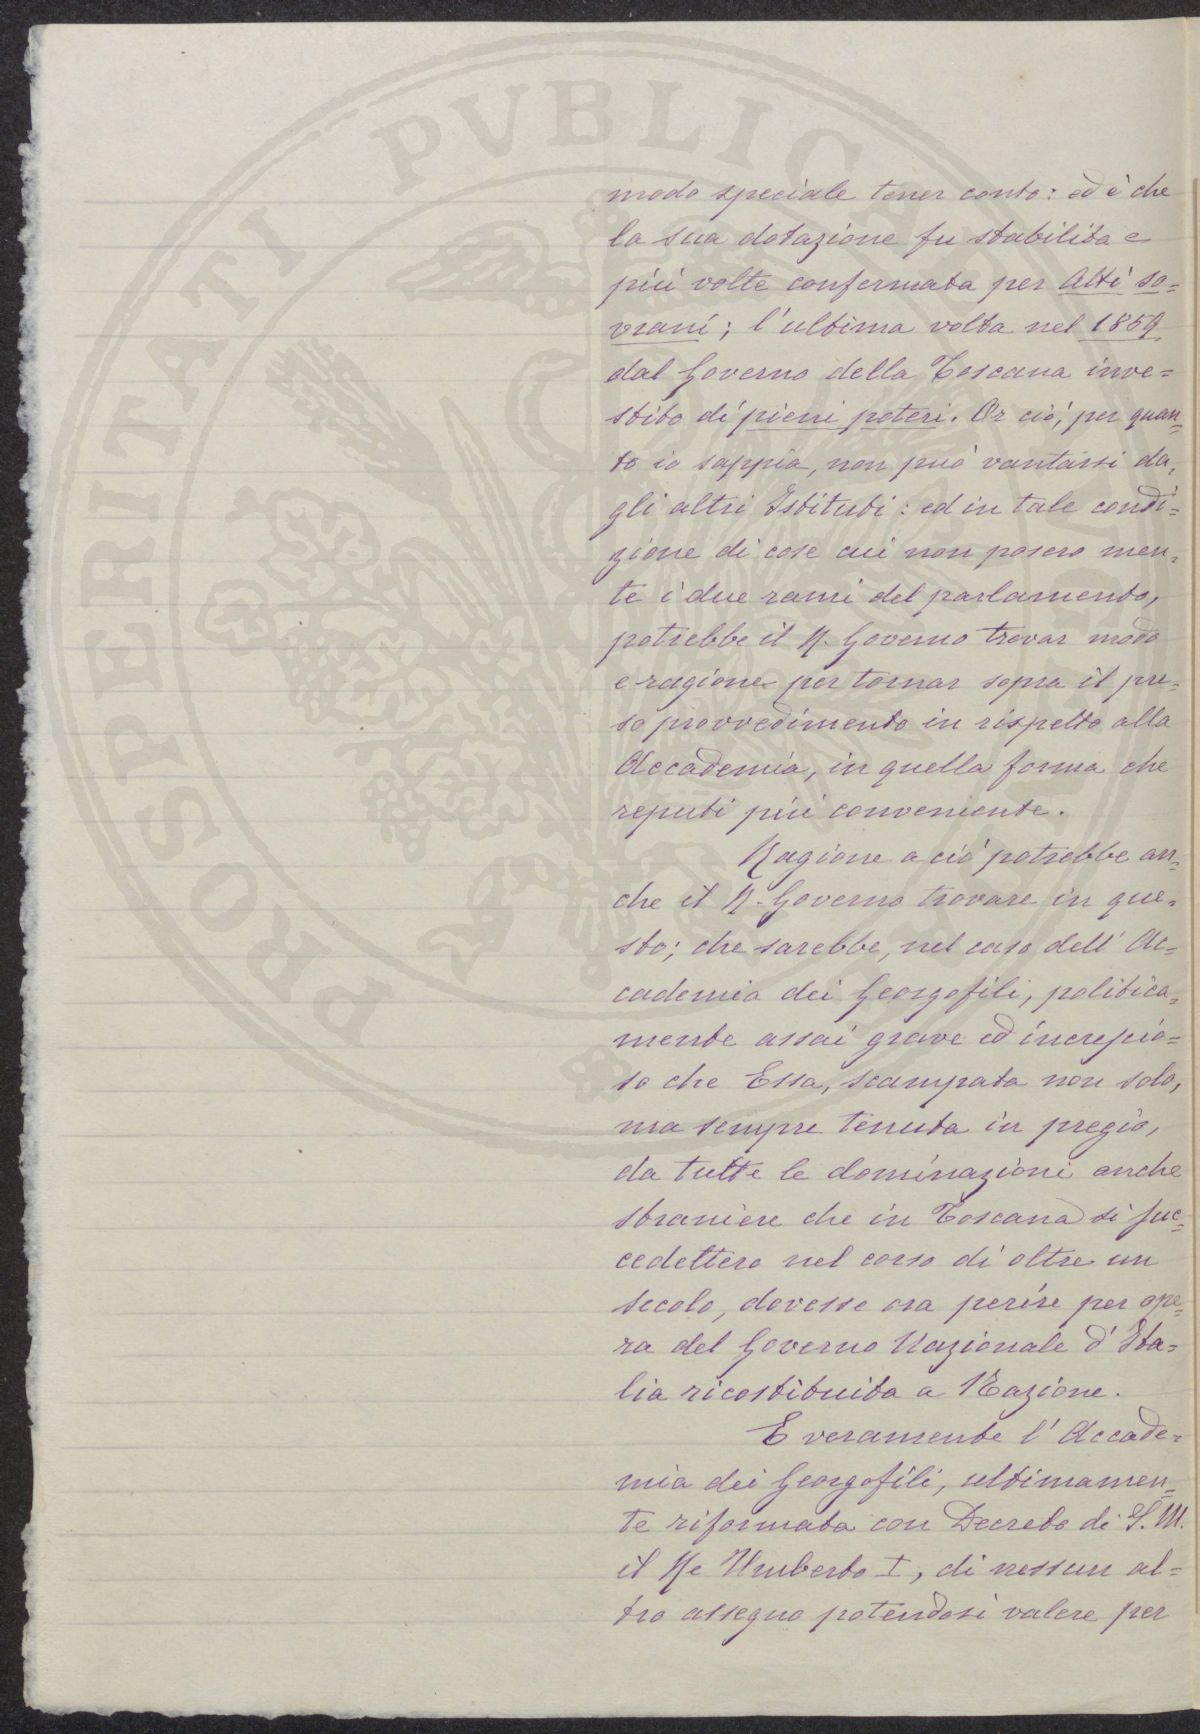 modo speciale tener conto: ed è che
la sua dotazione fu stabilita e
più volte confermata per Atti so=
vrani; l'ultima volta nel 1859
dal Governo della Toscana inve=
stito di pieni poteri. Or ciò, per quan=
to io sappia, non può vantarsi da=
gli altri Istituti: ed in tale condi=
zione di cose cui non posero men=
te i due rami del parlamento,
potrebbe il R. Governo trovar modo
e ragione per tornar sopra il pre=
so provvedimento in rispetto alla
Accademia, in quella forma che
reputi più conveniente.
Ragione a ciò potrebbe an=
che il R. Governo trovare in que=
sto; che sarebbe, nel caso dell' Ac=
cademia dei Georgofili, politica=
mente assai grave ed increscio=
so che Essa, scampata non solo,
ma sempre tenuta in pregio,
da tutte le dominazioni anche
straniere che in Toscana si suc=
cedettero nel corso di oltre un
secolo, dovesse ora perire per ope=
ra del Governo Nazionale d' Ita=
lia ricostituita a Nazione.
E veramente l' Accade=
mia dei Georgofili, ultimamen=
te riformata con Decreto di S. M.
il Re Umberto I, di nessun al=
tro assegno potendosi valere per
PROSPERITATI PVBLICAE